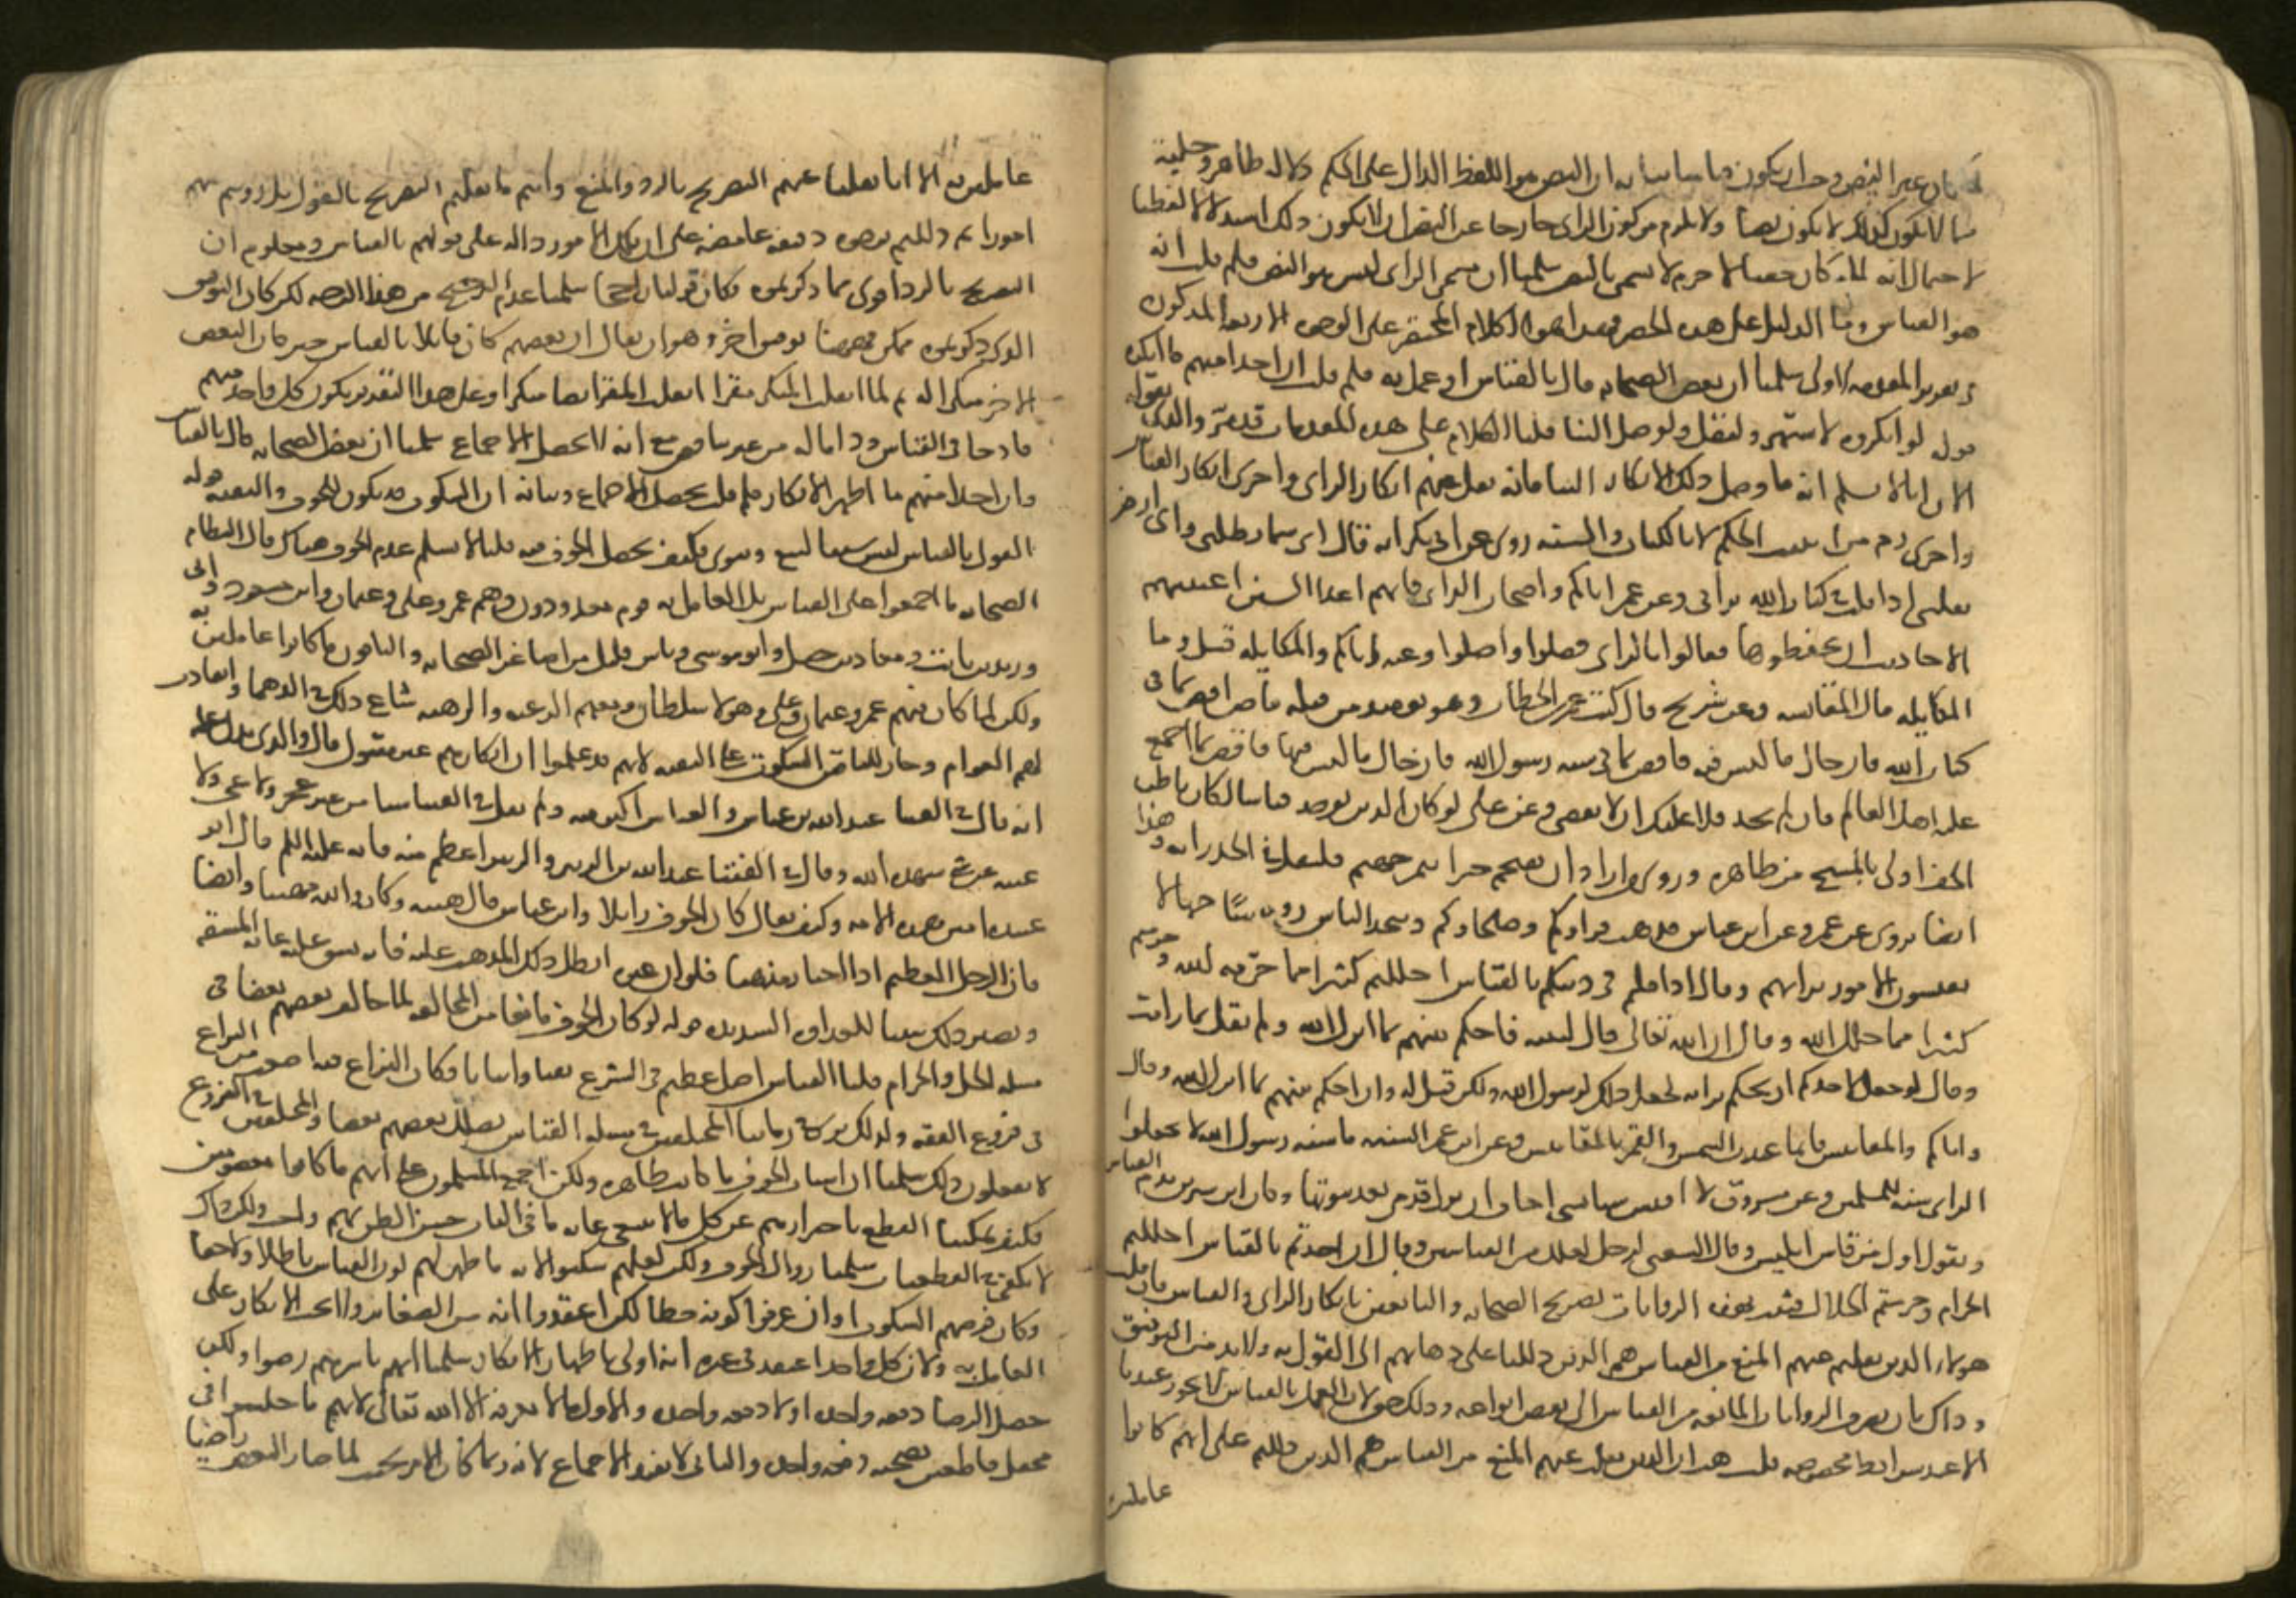 كان غير النص وجب ان يكون قياسا بيانه ان النص هو اللفظ الدال على الحكم دلالة ظاهرة جلية
فما لا يكون كذلك لا يكون نصا ولا يلزم من كون الراى خارجا عن النص ان لا يكون ذلك استدلالا لفظيا
لاحتمال انه لما كان خفيا لا جرم لا يسمى بالنص سلمنا ان مسمى الراى ليس هو النص فلم قلت انه
هو القياس وما الدليل على هذا الحصر فهذا هو الكلام المختصر على الوجوه الاربعة المذكورة
فى تقرير المقدمة الاولى سلمنا ان بعض الصحابة قال بالقياس او عمل به فلم قلت ان احدا منهم ما انكره
قوله لو انكروه لاشتهر ولنقل ولوصل الينا قلنا الكلام على هذه المقدمات قد مر والذى نقوله
الان انا لا نسلم انه ما وصل ذلك الانكار الينا فانه نقل عنهم انكار الراى واخرى انكار القياس
واخرى ذم من اثبت الحكم لا بالكتاب والسنة روى عن ابى بكر انه قال اى سماء تظلنى واى ارض
تقلنى اذا قلت فى كتاب الله برايى وعن عمر اياكم واصحاب الراى فانهم اعداء السنن اعيتهم
الاحاديث ان يحفظوها فقالوا بالراى فضلوا واضلوا وعنه اياكم والمكايلة قيل وما
المكايلة قال المقايسة وعن شريح قال كتب عمر بن الخطاب وهو يومئذ من قبله قاض اقض بما فى
كتاب الله فان جاءك ما ليس فيه فاقض بما فى سنة رسول الله فان جاءك ما ليس فيها فاقض بما اجمع
عليه اهل العلم فان لم تجد فلا عليك ان لا تقضى وعن على لو كان الدين يوخذ قياسا لكان باطن
الخف اولى بالمسح من ظاهره وروى من اراد ان يقتحم جراثيم جهنم فليقل فى الجد برايه وهذا
ايضا يروى عن عمر وعن ابن عباس يذهب قراوكم وصلحاوكم ويتخذ الناس روسا جهالا
يقيسون الامور برايهم وقال اذا قلتم فى دينكم بالقياس احللتم كثيرا مما حرمه الله وحرمتم
كثيرا مما حلل الله وقال ان الله تعالى قال لنبيه فاحكم بينهم بما انزل الله ولم يقل بما رايت
وقال لو جعل لاحدكم ان يحكم برايه لجعل ذلك لرسول الله ولكن قيل له وان احكم بينهم بما انزل الله وقال
واياكم والمقاييس فانما عبدت الشمس والقمر بالمقاييس وعن ابن عمر السنة ما سنه رسول الله لا تجعلوا
الراى سنة للمسلمين وعن مسروق لا اقيس شيئا بشى اخاف ان تزل قدمى بعد ثبوتها وكان ابن سيرين يذم القياس
ويقول اول من قاس ابليس وقال الشعبى لرجل لعلك من القياسين وقال ان اخذتم بالقياس احللتم
الحرام وحرمتم الحلال فثبت بهذه الروايات تصريح الصحابة والتابعين بانكار الراى والقياس فان قلت
هولاء الذين نقلتم عنهم المنع من القياس هم الذين دللنا على ذهابهم الى القول به ولا بد من التوفيق
وذاك بان نصرف الروايات المانعة من القياس الى بعض انواعه وذلك حق لان العمل بالقياس لا يجوز عندنا
الا عند شرايط مخصوصة قلت هب ان الذين نقلت عنهم المنع من القياس هم الذين دللتم على انهم كانوا
عاملين
عاملين به الا انا نقلنا عنهم التصريح بالرد والمنع وانتم ما نقلتم التصريح بالقول بل رويتم عنهم
امورا ثم دللتم بوجوه دقيقة غامضة على ان تلك الامور دالة على قولهم بالقياس ومعلوم ان
التصريح بالرد اقوى مما ذكرتموه فكان قولنا راجحا سلمنا عدم الترجيح من هذا الوجه لكن كان التوفيق
الذى ذكرتموه ممكن فههنا توفيق اخر وهو ان يقال ان بعضهم كان قائلا بالقياس حين كان البعض
الاخر منكرا له ثم لما انقلب المنكر مقرا انقلب المقر ايضا منكرا وعلى هذا التقدير يكون كل واحد منهم
قادحا فى القياس ورادا له من غير تناقض مع انه لا يحصل الاجماع سلمنا ان بعض الصحابة قال بالقياس
وان احدا منهم ما اظهر الانكار فلم قلت يحصل الاجماع وبيانه ان السكوت قد يكون للخوف والتقية قوله
القول بالقياس ليس سببا لنيل دنيوى فكيف يحصل الخوف فيه قلنا لا نسلم عدم الخوف هناك قال النظام
الصحابة ما اجمعوا على القياس بل العامل به قوم معدودون وهم عمر وعلى وعثمان وابن مسعود وابى
وزيد بن ثابت ومعاذ بن جبل وابو موسى وناس قليل من اصاغر الصحابة والباقون ما كانوا عاملين به
ولكن لما كان فيهم عمر وعثمان وعلى وهولاء سلاطين ومعهم الرغبة والرهبة شاع ذلك فى الدهماء وانقادت
لهم العوام وجاز للباقين السكوت على التقية لانهم قد علموا ان انكارهم غير مقبول قال والذى يدل عليه
انه قال فى القضاء عبد الله بن عباس والعباس اكبر منه ولم يقل فى القضاء شيئا من غير عجز ولا عى ولا
غيبة عن شى شهده ابنه وقال فى الفتيا عبد الله بن الزبير والزبير اعظم منه فانه عليه السلم قال ابو
عبيدة امين هذه الامة وكيف يقال كان الخوف زايلا وابن عباس قال هبته وكان والله مهيبا وايضا
فان الرجل العظيم اذا اختار مذهبا فلو ان غيره ابطل ذلك المذهب عليه فانه يشق عليه غاية المشقة
ويصير ذلك سببا للعداوة الشديدة قوله لو كان الخوف مانعا من المخالفة لما خالف بعضهم بعضا فى
مسلة الحل والحرام قلنا القياس اصل عظيم فى الشرع نفيا واثباتا وكان النزاع فيه اصعب من النزاع
فى فروع الفقه ولذلك نرى فى زماننا المختلفين فى مسلة القياس يضلل بعضهم بعضا والمختلفين فى الفروع
لا يفعلون ذلك سلمنا ان اسباب الخوف ما كانت ظاهرة ولكن اجمع المسلمون على انهم ما كانوا معصومين
فكيف يمكننا القطع باحترازهم عن كل ما لا ينبغى غاية ما فى الباب حسن الظن بهم ولكن ذاك
لا يكفى فى القطعيات سلمنا زوال الخوف ولكن لعلهم سكتوا لانه ما ظهر لهم كون القياس باطلا ولا حقا
وكان فرضهم السكوت او ان عرفوا كونه خطا لكن اعتقدوا انه من الصغاير ولا يجب الانكار على
العامل به ولان كل واحد اعتقد فى غيره انه اولى باظهار الانكار سلمنا انهم باسرهم رضوا ولكن
حصل الرضا دفعة واحدة او لا دفعة واحدة والاول مما لا يعرفه الا الله تعالى لانهم ما جلسوا فى
محفل قاطعين بصحته دفعة واحدة والثانى لا يفيد الاجماع لانه ربما كان الامر بحيث لما صار البعض راضيا